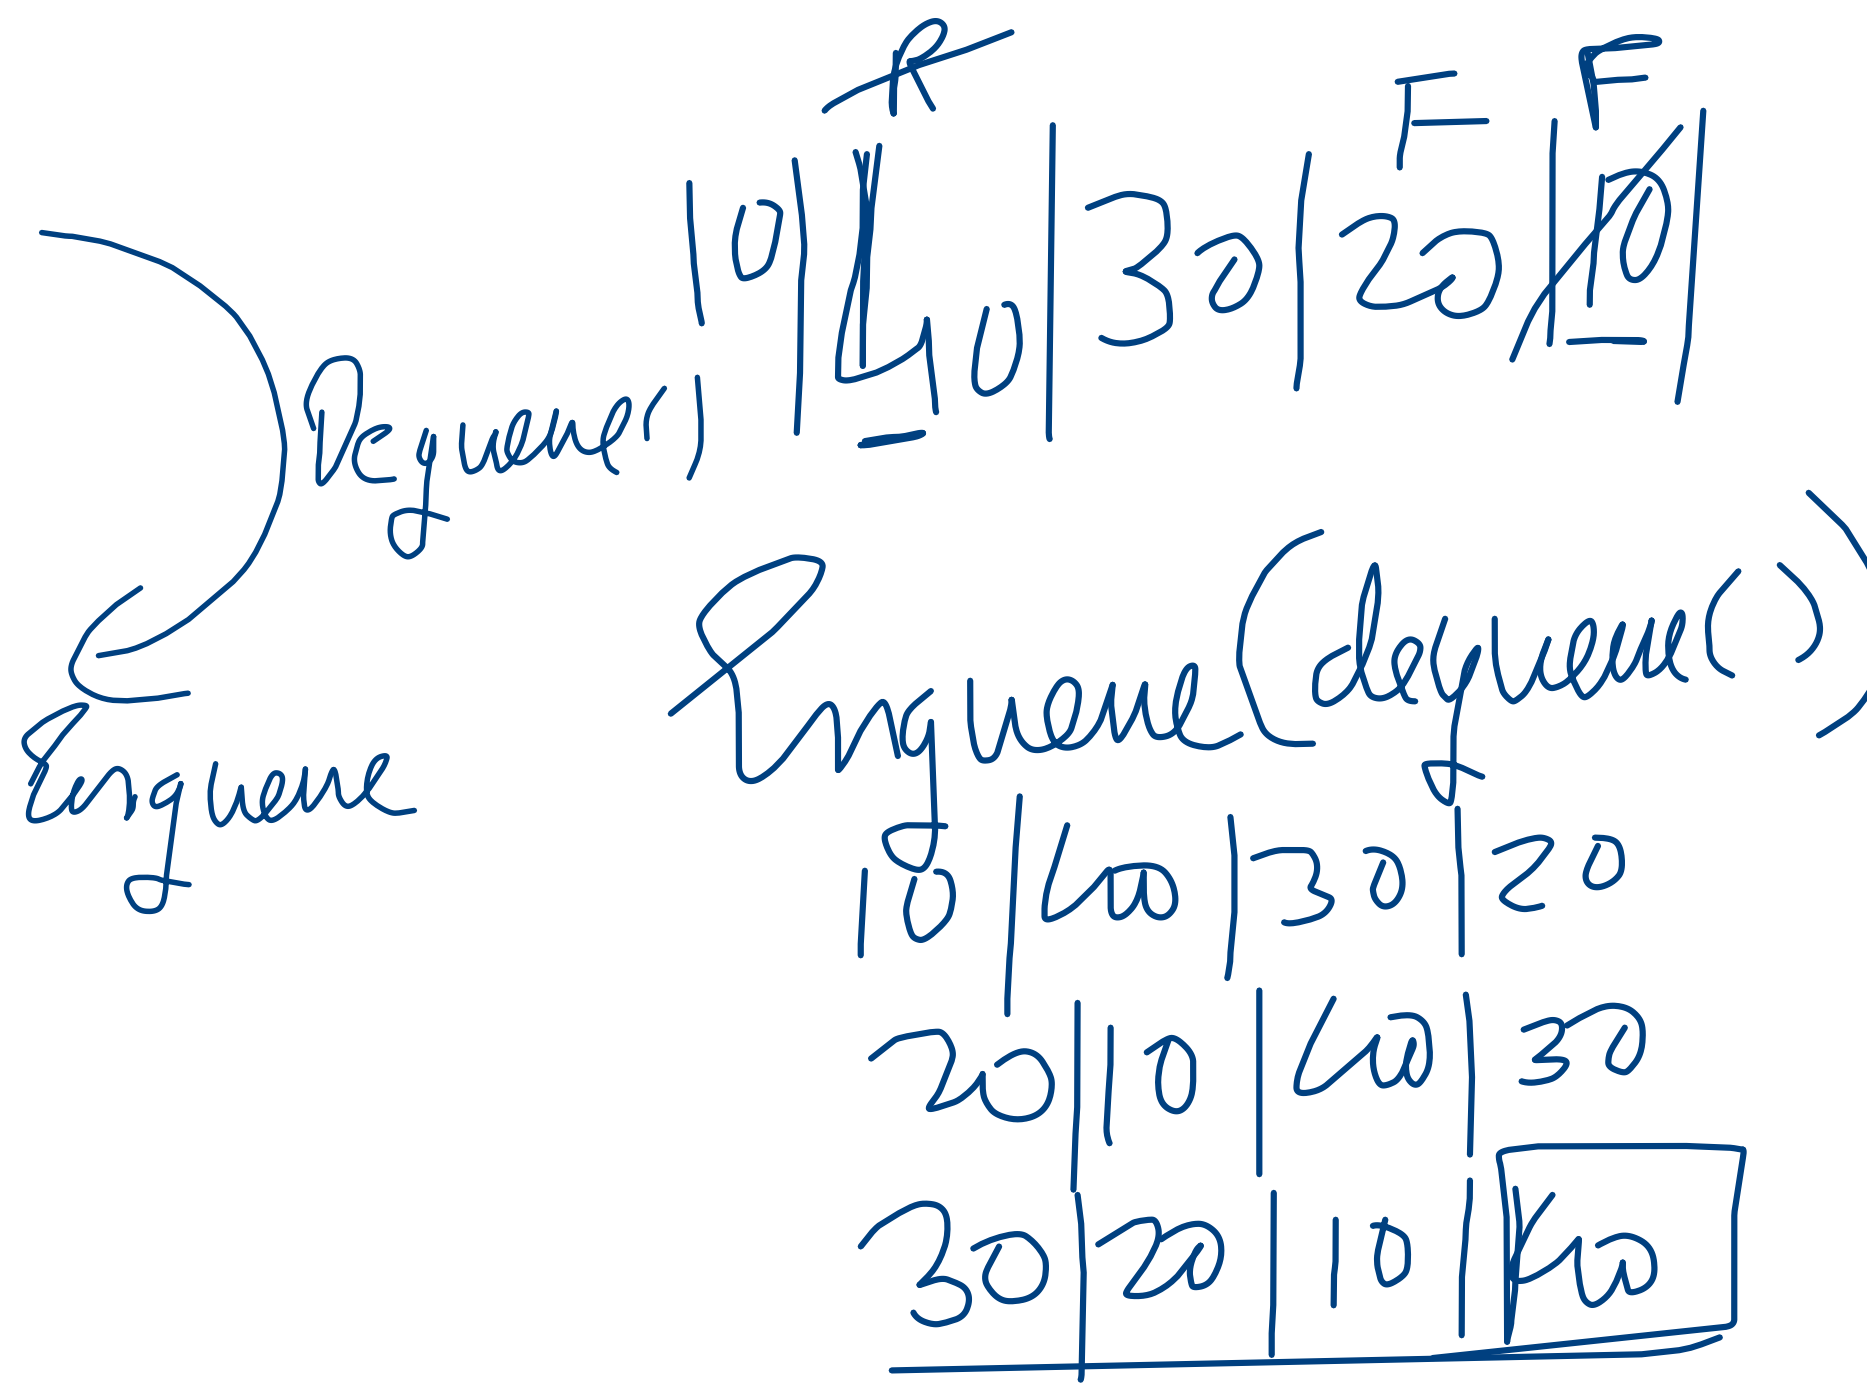 R F F
10 | 40 | 30 | 20 | 10 |
Dequeue()
Enqueue(dequeue())
Enqueue
10 | 40 | 30 | 20
20 | 10 | 40 | 30
30 | 20 | 10 | 40